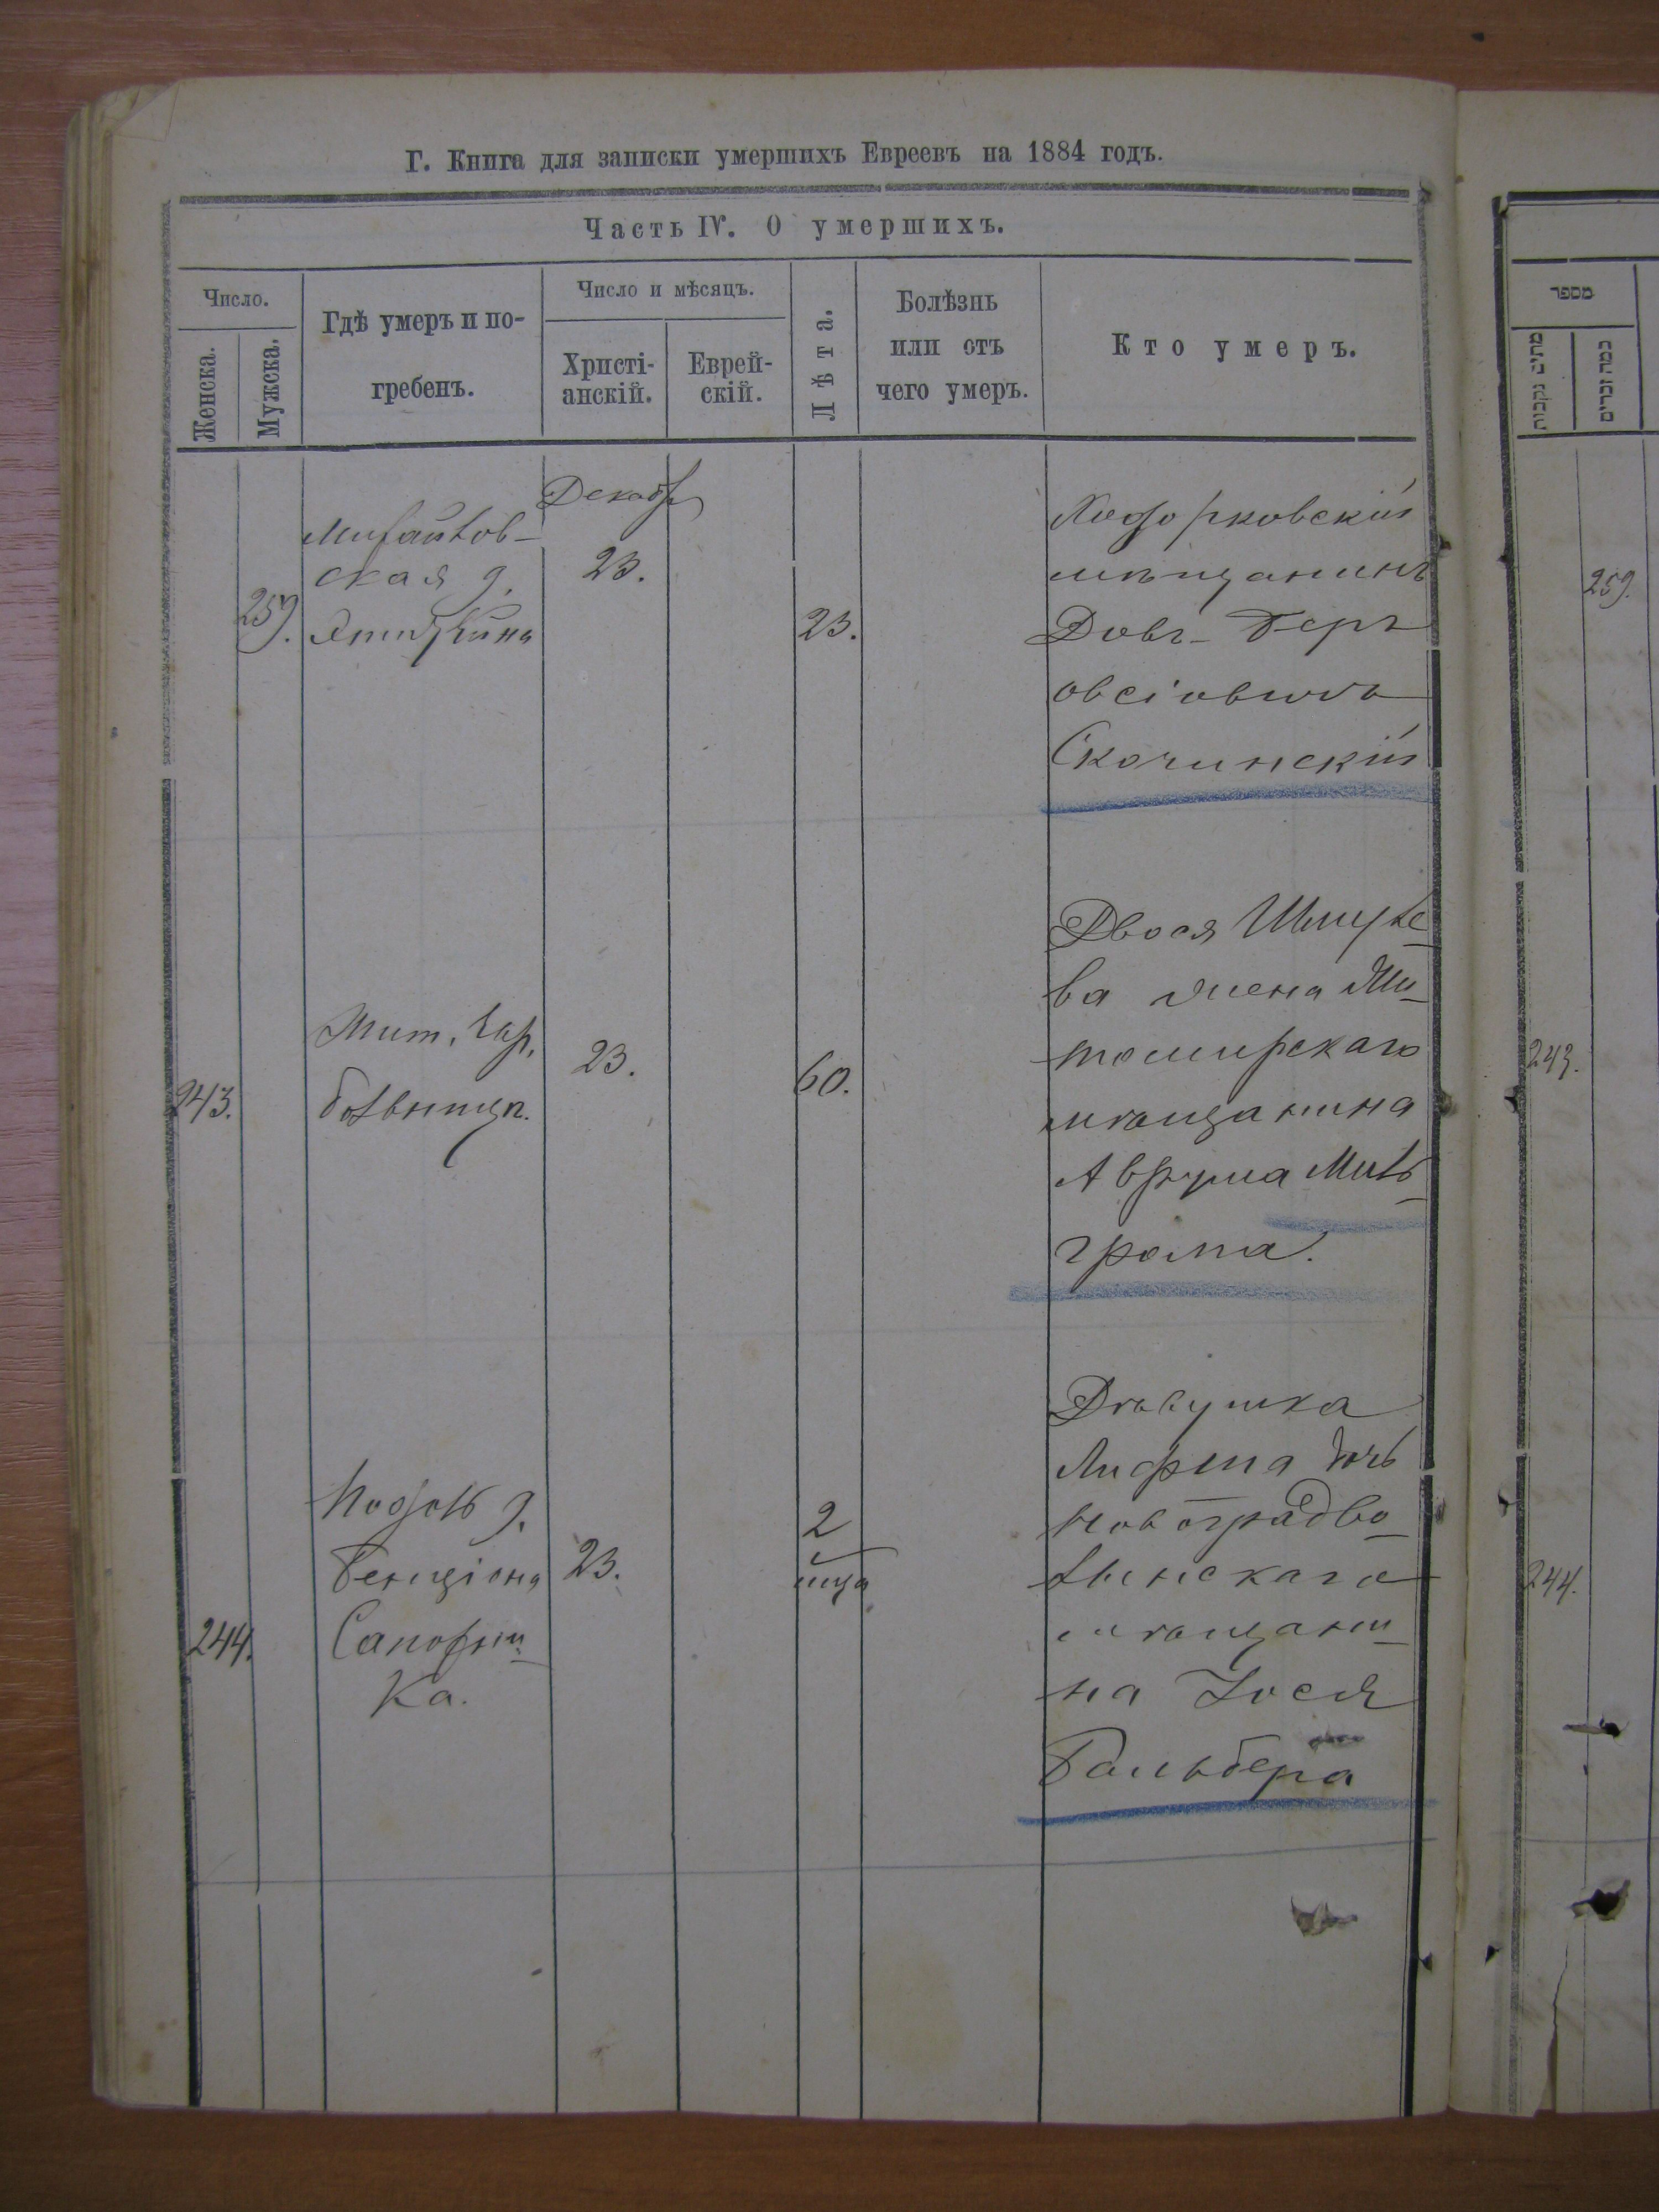 Г. Книга для записки умершихъ Евреевъ на 1884 годъ.
Часть IV. О умершихъ.
Число.
Женска.
Мужска.
Гдѣ умеръ и по-
гребенъ.
Число и мѣсяцъ.
Христі-
анскій.
Еврей-
скій.
Лѣта.
Болѣзнь
или отъ
чего умеръ.
Кто умеръ.
Декабр
259.
Михайлов-
ская д.
23.
23.
Ходорковскій
мѣщанинъ
Довъ-Беръ
овсіовичъ
Скочинскій
243.
Жит. Евр.
больница.
23.
60.
Двося Шмуле
ва жена Жи-
томирскаго
мѣщанина
Аврума Миль-
грома.
244.
Подоль д.
Бенціона
Сапожни-
ка.
23.
2
мца
Дѣвушка
дочь
Новоградво-
лынскаго
мѣщани-
на Іося
Гольбера
מספר
מתים נקבות
כמה זכרים
259.
243.
244.